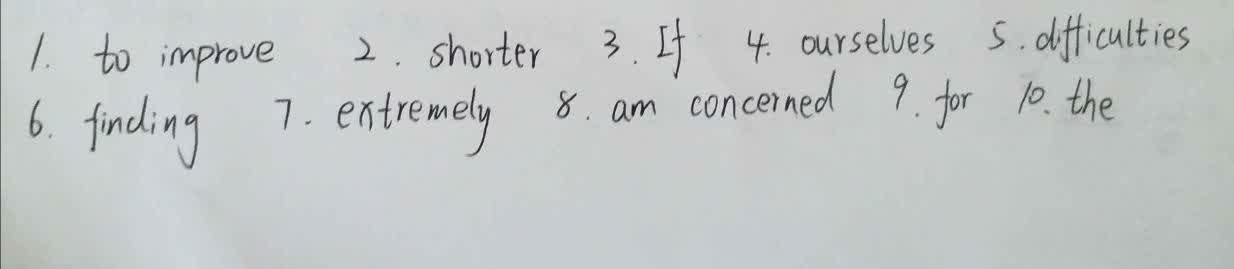 1. to improve 2. shorter 3. If 4. ourselves 5. difficulties
6. finding 7. extremely 8. am concerned 9. for 10. the